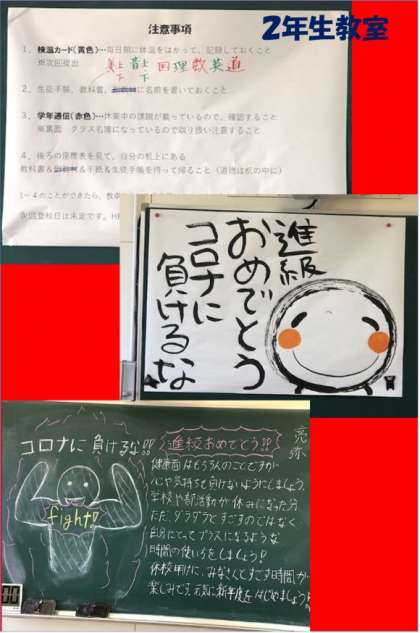 2年生教室
注意事項
1、検温カード(黄色)…毎日朝に体温をはかって、記録しておくこと
※次回提出
国 理 数 英 道
2、生徒手帳、教科書、に名前を書いておくこと
3、学年通信(赤色)…休業中の課題が載っているので、確認すること
※裏面 クラス名簿になっているので取り扱い注意すること
4、後ろの座席表を見て、自分の机上にある
教科書&&手紙&生徒手帳を持って帰ること(道徳は机の中に)
1~4のことができたら、教卓
次回登校日は未定です。
進級
おめでとう
コロナに
負けるな
コロナに負けるな!!
fight!
進級おめでとう!!
健康面はもちろんのことですが
心や気持ちも負けないようにしましょう。
学校や部活動が休みになった分
ただ、ダラダラとすごすのではなく
自分にとってプラスになるような
時間の使い方をしましょう!
休校明けに、みなさんとすごす時間が
楽しみです。元気に新年度をはじめましょう!
00